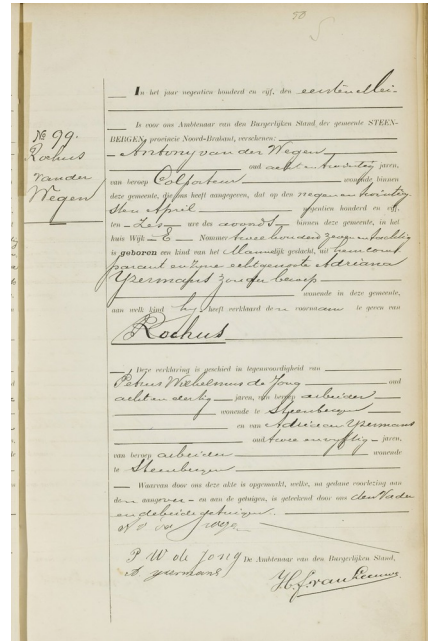 50
In het jaar negentien honderd en vijf, den eersten Mei
Is voor ons Ambtenaar van den Burgerlijken Stand, der gemeente STEEN-
BERGEN, provincie Noord-Brabant, verschenen:
Nº 99.
Rochus
van der
Wegen
Antony van der Wegen
oud acht en twintig jaren,
van beroep Colporteur wonende binnen
deze gemeente, die ons heeft aangegeven, dat op den negen en twintig
sten April negentien honderd en vijf,
ten Zes ure des avonds binnen deze gemeente, in het
huis Wijk E Nummer twee honderd zeven en tachtig
is geboren een kind van het Mannelijk geslacht, uit hem com
parant en zijne echtgenoote Adriana
Ypermans zonder beroep
wonende in deze gemeente,
aan welk kind hij heeft verklaard den voornaam te geven van
Rochus
Deze verklaring is geschied in tegenwoordigheid van
Petrus Wilhelmus de Jong oud
acht en dertig jaren, van beroep arbeider
wonende te Steenbergen
en van Adriaan Ypermans
oud twee en vijftig jaren,
van beroep arbeider wonende
te Steenbergen
Waarvan door ons deze akte is opgemaakt, welke, na gedane voorlezing aan
den aangever en aan de getuigen, is geteekend door ons den Vader
en de beide getuigen.
P W de Jong De Ambtenaar van den Burgerlijken Stand,
A ypermans